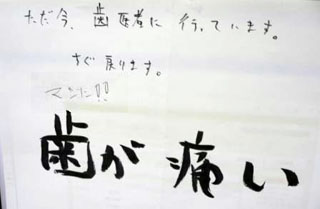 ただ今、歯医者に行っています。
すぐ戻ります。
マジだ!!
歯が痛い